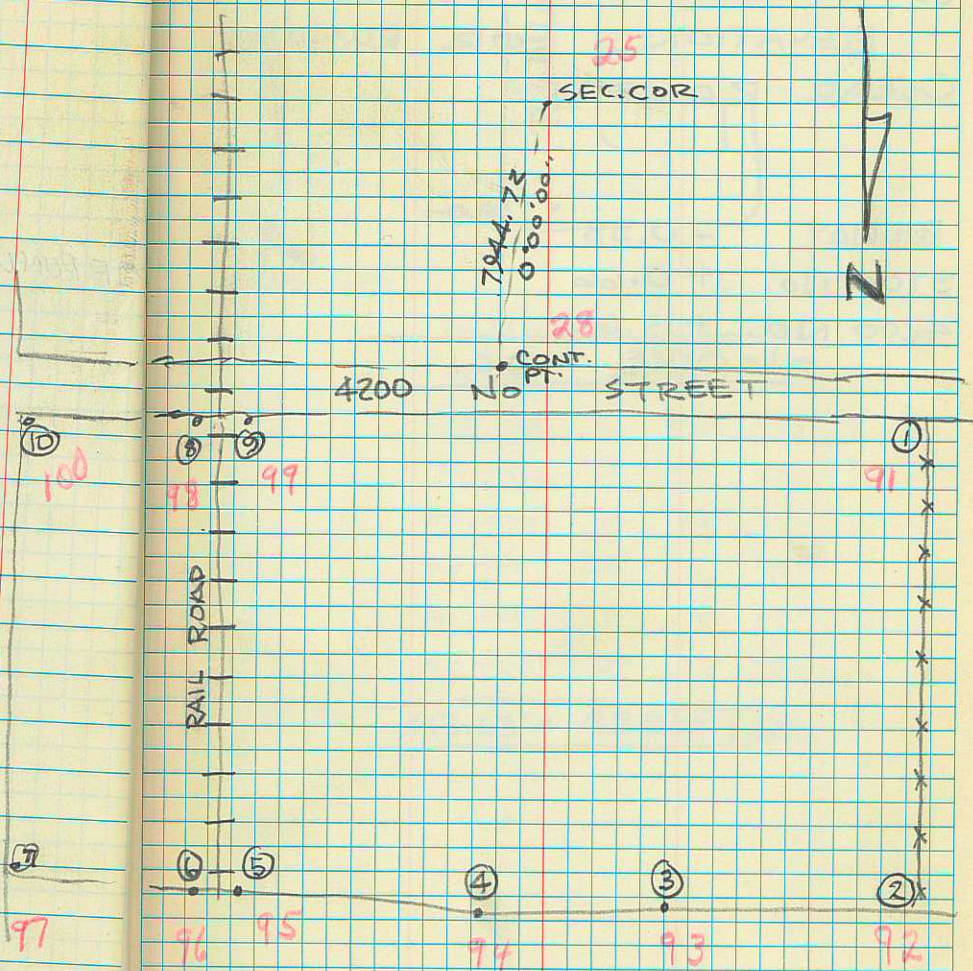 25
SEC. COR
7944.72
0°00'00"
N
28
CONT.
PT.
4200 No STREET
10
8
9
1
100
98
99
91
RAIL ROAD
7
6
5
4
3
2
97
96
95
94
93
92